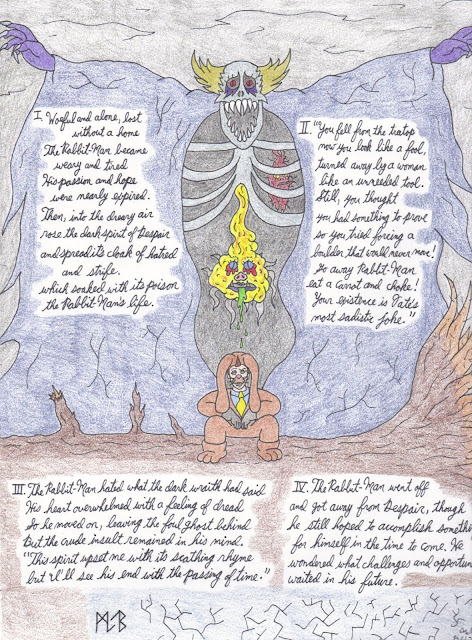 I. Woeful and alone, lost
without a home
The Rabbit-Man became
weary and tired
His passion and hope
were nearly expired.
Then, into the dreary air
rose the dark spirit of Despair
and spread its cloak of hatred
and strife.
which soaked with its poison
the Rabbit-Man's life.
II. "You fell from the treetop
now you look like a fool,
turned away by a woman
like an unneeded tool.
Still, you thought
you had something to prove
so you tried forcing a
boulder that would never move!
Go away Rabbit-Man
eat a carrot and choke!
Your existence is Fate's
most sadistic joke."
III. The Rabbit-Man hated what the dark wraith had said
His heart overwhelmed with a feeling of dread
So he moved on, leaving the foul ghost behind
But the crude insult remained in his mind.
"This spirit upset me with its scathing rhyme
but I'll see his end with the passing of time."
IV. The Rabbit-Man went off
and got away from Despair, though
he still hoped to accomplish somethin
for himself in the time to come. He
wondered what challenges and opportun
waited in his future.